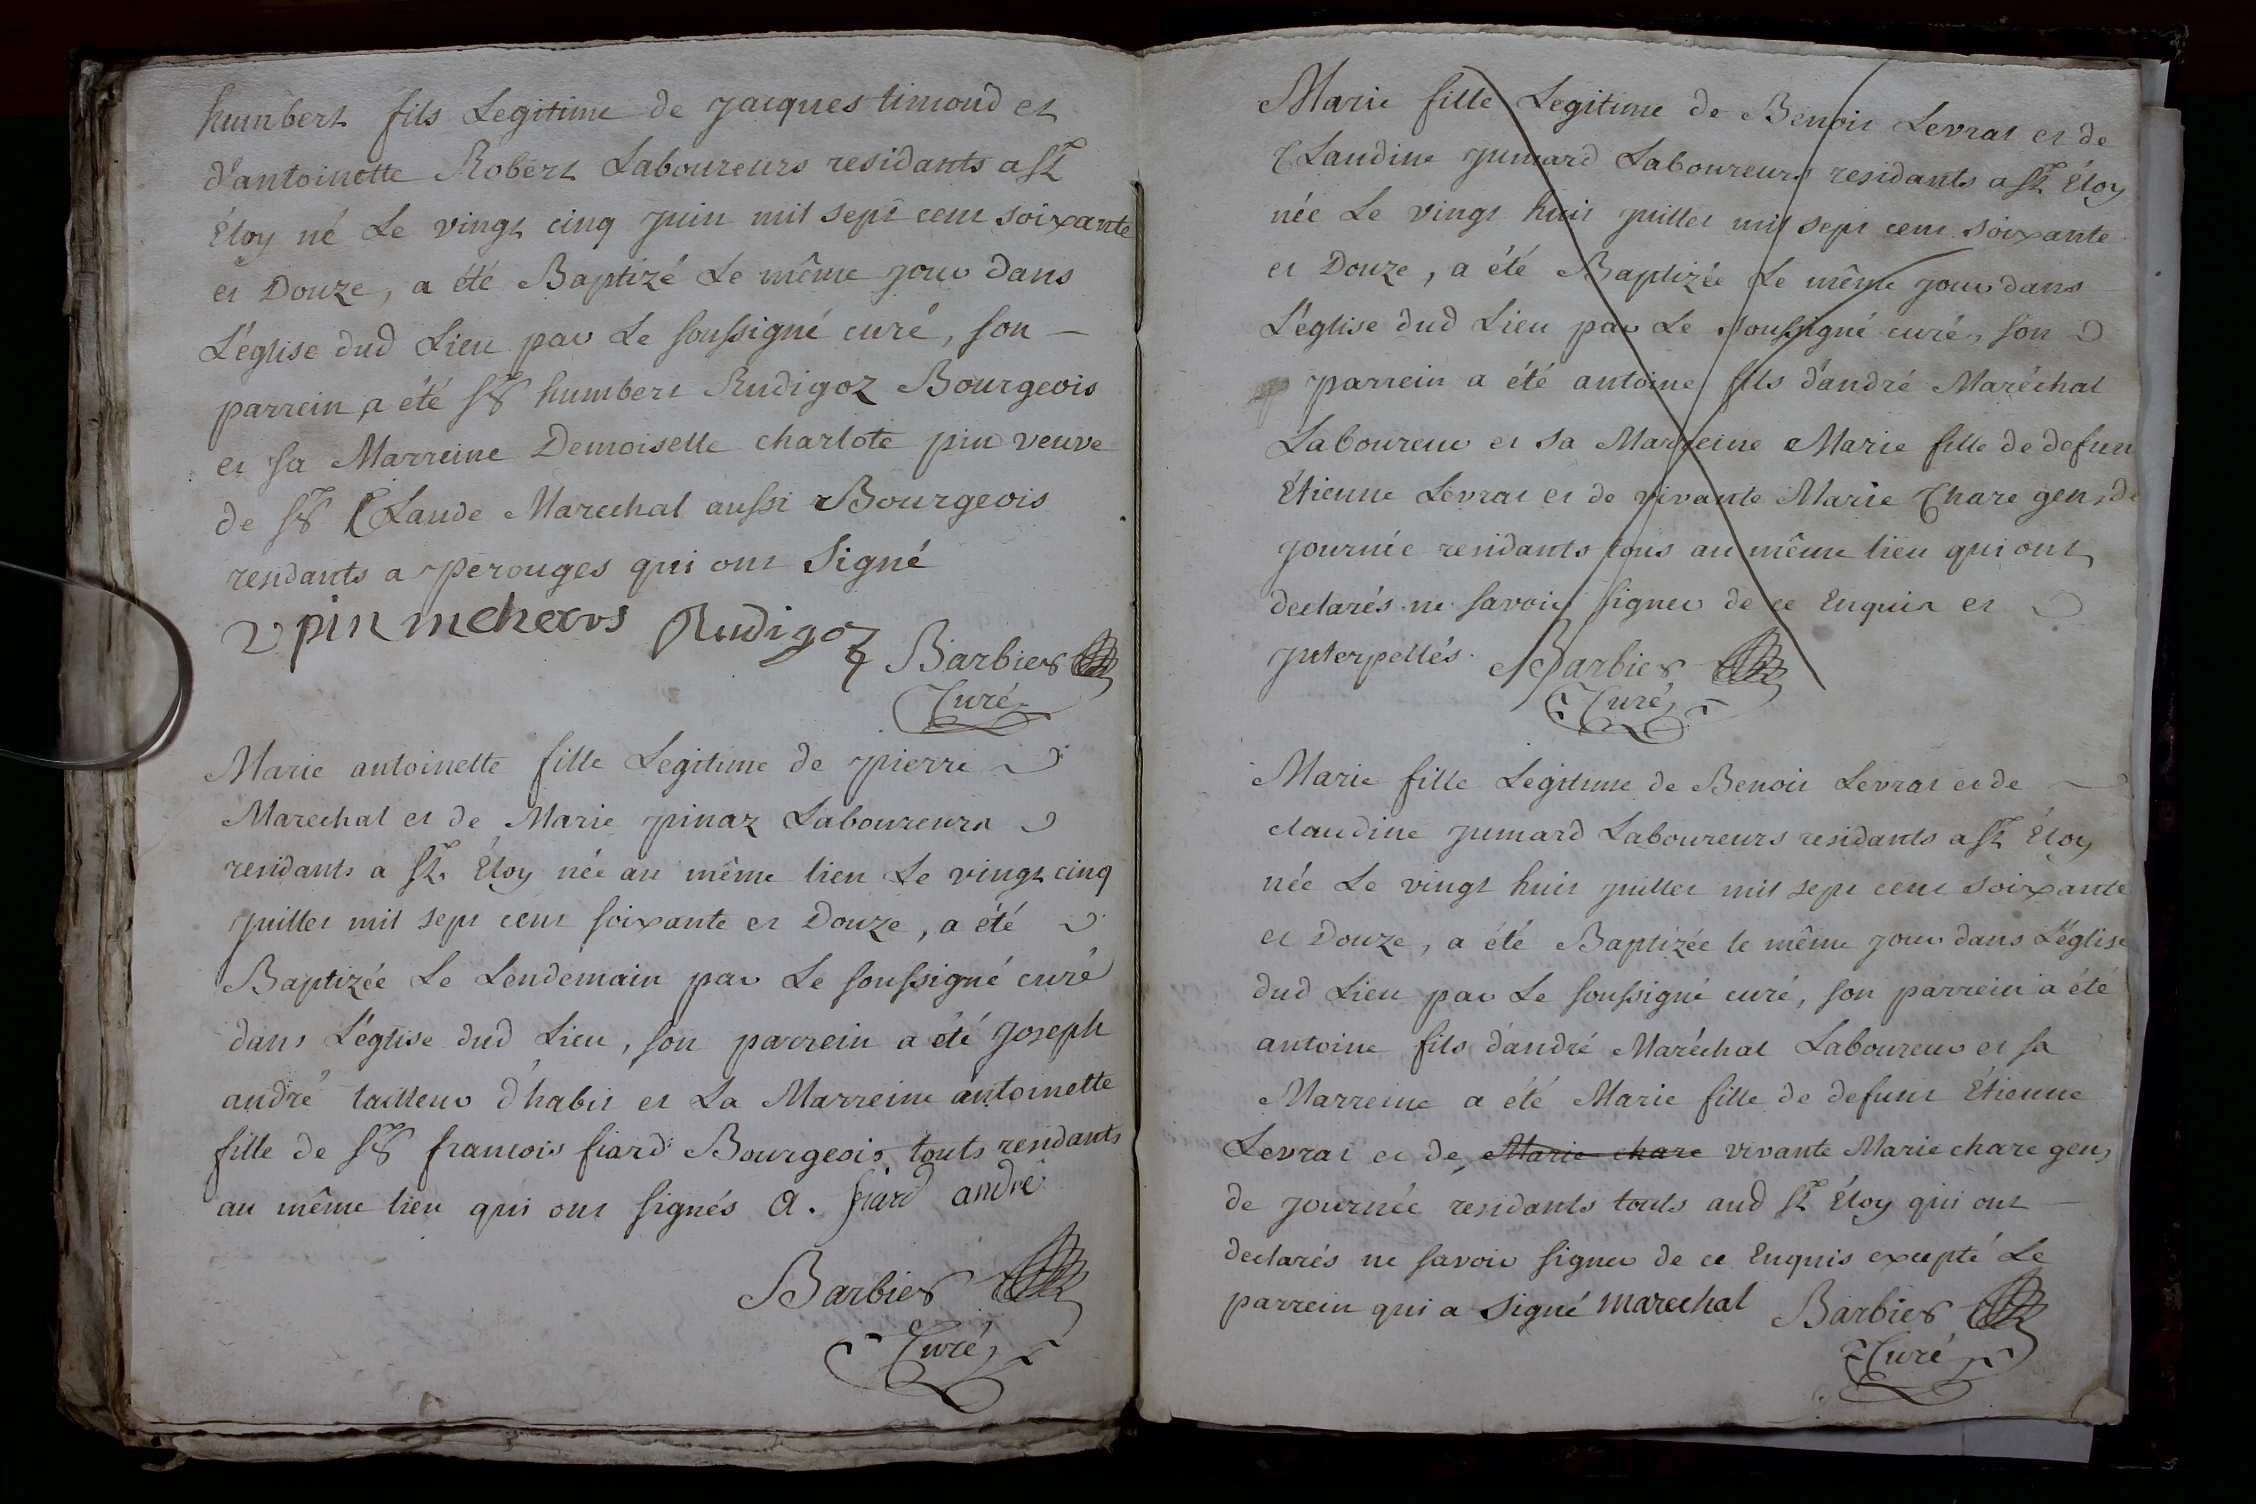 humbert fils Legitime de jacques timoud et
d'antoinette Robert Laboureurs residants a st
Éloy né Le vingt cinq juin mil sept cent soixante
et Douze, a été Baptizé Le même jour dans
L'église dud Lieu par Le soussigné curé, son
parrein a été sr humbert Rudigoz Bourgeois
et sa Marreine Demoiselle charlote pin veuve
de sr Claude Marechal aussi Bourgeois
residants a perouges qui ont Signé
v pin Rudigoz Barbier
Curé
Marie antoinette fille Legitime de pierre
Marechal et de Marie pinaz Laboureurs
residants a st Éloy née au même lieu Le vingt cinq
juillet mil sept cent soixante et Douze, a été
Baptizée Le Lendemain par Le soussigné curé
dans L'église dud Lieu, son parrein a été joseph
andré tailleur d'habit et La Marreine antoinette
fille de sr francois fiard Bourgeois touts residants
au même lieu qui ont signés a. fiard andré
Barbier
Curé
Marie fille Legitime de Benoit Levrat et de
Claudine jumard Laboureurs residants a st Éloy
née Le vingt huit juillet mil sept cent soixante
et Douze, a été Baptizée Le même jour dans
L'église dud Lieu par Le soussigné curé, son
parrein a été antoine fils d'andré Maréchal
Laboureur et sa Marreine Marie fille de defun
Étienne Levrat et de vivante Marie Chare gens de
journée residants tous au même lieu qui ont
declarés ne savoir signer de ce Enquis et
interpellés. Barbier
Curé
Marie fille Legitime de Benoit Levrat et de
claudine jumard Laboureurs residants a st Éloy
née Le vingt huit juillet mil sept cent soixante
et Douze, a été Baptizée le même jour dans L'église
dud Lieu par Le soussigné curé, son parrein a été
antoine fils d'andré Maréchal Laboureur et sa
Marreine a été Marie fille de defunt Étienne
Levrat et de Marie chare vivante Marie chare gens
de journée residants touts aud st Éloy qui ont
declarés ne savoir signer de ce Enquis excepté Le
parrein qui a signé marechal Barbier
Curé